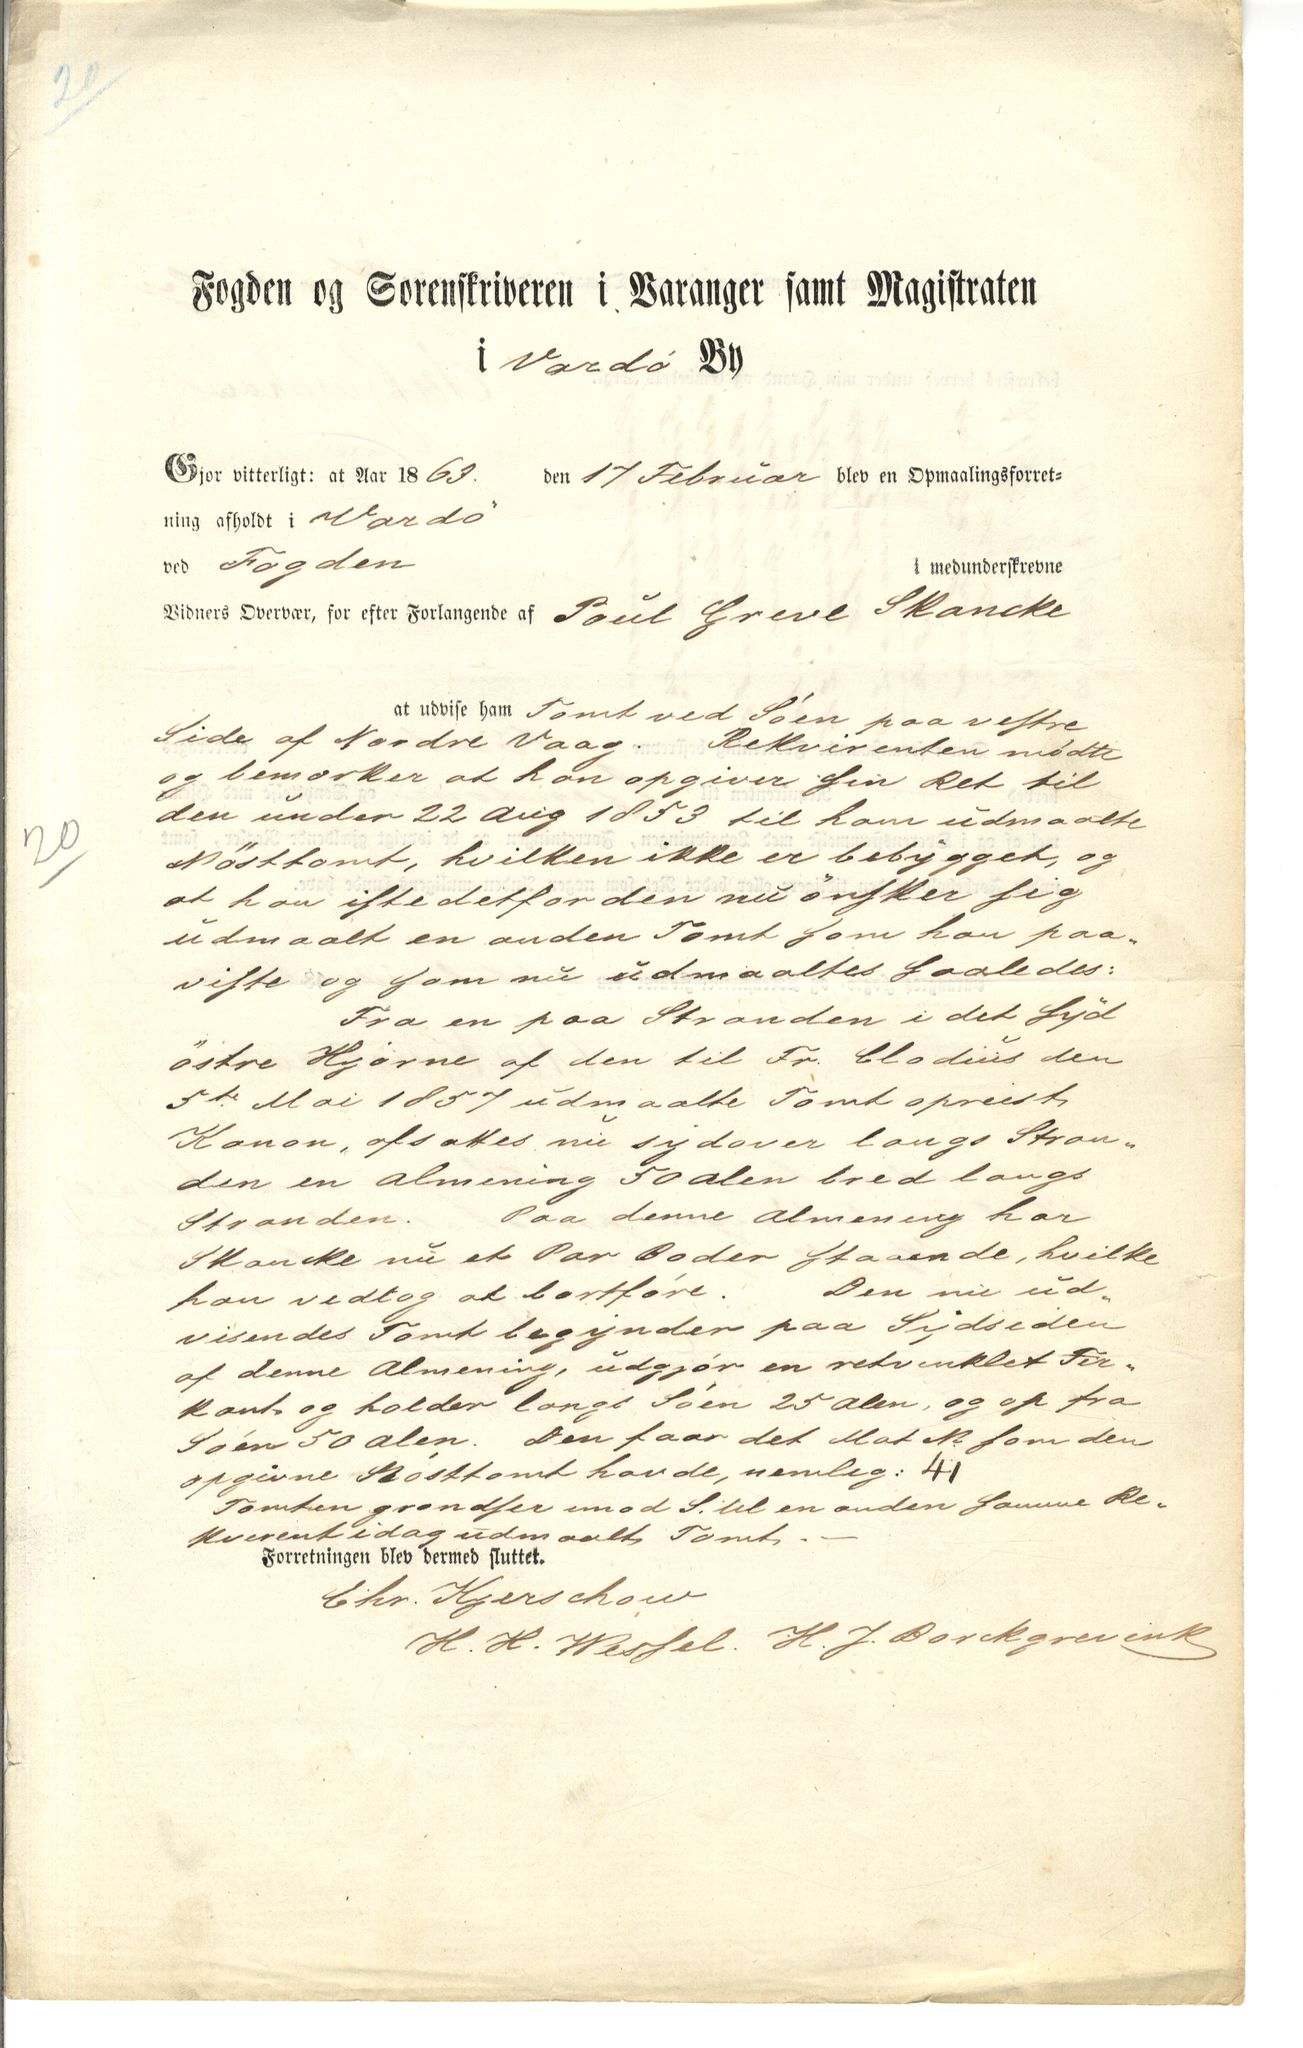 20
Fogden og Sorenskriveren i Varanger samt Magistraten
i Vardö By
Gjør vitterligt: at Aar 1863. den 17 Februar blev en Opmaalingsforret-
ning afholdt i Vardö
ved Fogden i medunderskrevne
Vidners Overvær, for efter Forlangende af Poul Greve Skancke
at udvise ham Tomt ved Söen paa vestre
Side af Nordre Vaag. Rekvirenten mödte
og bemærker at han opgiver sin Ret til
den under 22 Aug 1853 til ham udmaalte
20
Nösttomt, hvilken ikke er bebygget, og
at han istedetfor den nu önsker sig
udmaalt en anden Tomt som han paa-
viste og som nu udmaaltes saaledes:
Fra en paa Stranden i det Syd
östre Hjörne af den til Fr. Clodius den
5te Mai 1857 udmaalte Tomt opreist
Kanon, afsattes nu sydover langs Stran-
den en Almening 50 Alen bred langs
Stranden. Paa denne Almening har
Skancke nu et Par Boder staaende, hvilke
han vedtog at bortföre. Den nu ud-
visendes Tomt begynder paa Sydsiden
af denne Almening, udgjör en retvinklet Fir-
kant og holder langs Söen 25 Alen, og op fra
Söen 50 Alen. Den faar det Mat No som den
opgivne Nösttomt havde, nemlig: 41
Tomten grændser imod S. til en anden samme Re-
kvirent idag udmaalt Tomt. —
Forretningen blev dermed sluttet.
Chr. Kjerschow
H. H. Wessel. H. J. Borckgrevink